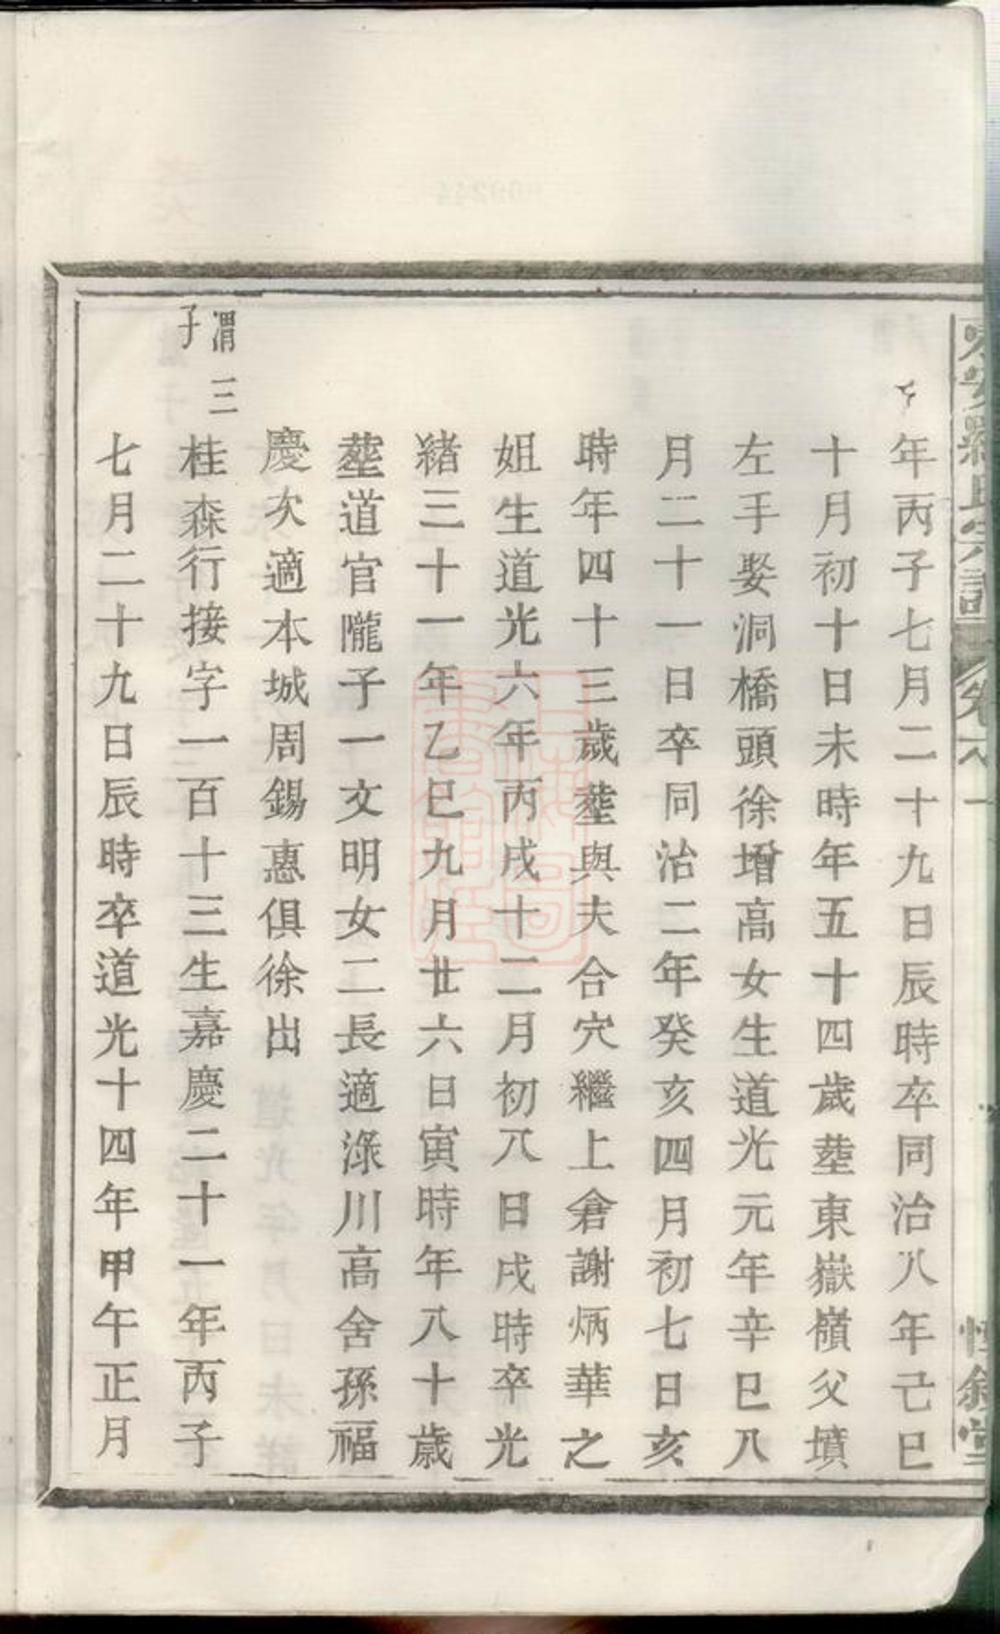 年丙子七月二十九日辰時卒同治八年己巳
十月初十日未時年五十四歲塟東嶽嶺父墳
左手娶洞橋頭徐增高女生道光元年辛巳八
月二十一日卒同治二年癸亥四月初七日亥
時年四十三歲塟與夫合穴繼上倉謝炳華之
姐生道光六年丙戌十二月初八日戌時卒光
緒三十一年乙巳九月廿六日寅時年八十歲
塟道官隴子一文明女二長適淥川高舍孫福
慶次適本城周錫惠俱徐出
渭三
子
桂森行接字一百十三生嘉慶二十一年丙子
七月二十九日辰時卒道光十四年甲午正月